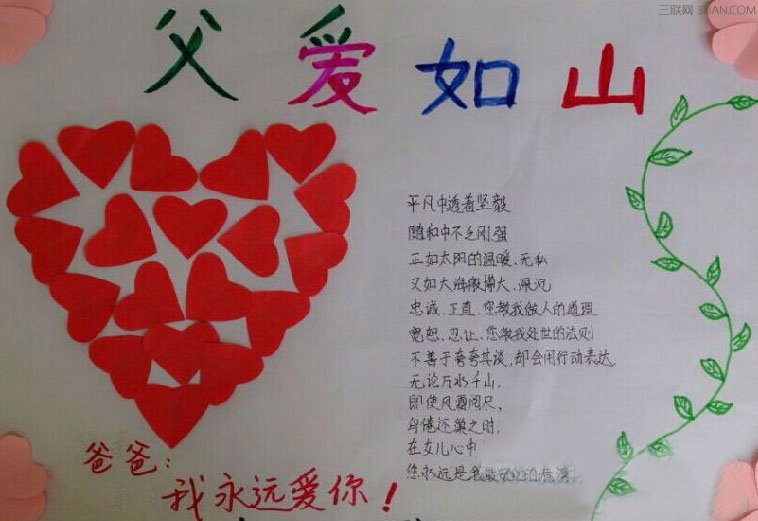 三联网 3LIAN.COM
父爱如山
平凡中透着坚毅
随和中不乏刚强
正如太阳的温暖、无私
又如大海般博大、深沉
忠诚、正直,您教我做人的道理
宽恕、忍让,您教我处世的法则
不善于夸夸其谈,却会用行动表达
无论万水千山,
即使风霜
之时,
在女儿心中
您永远是我
爸爸:
我永远爱你!